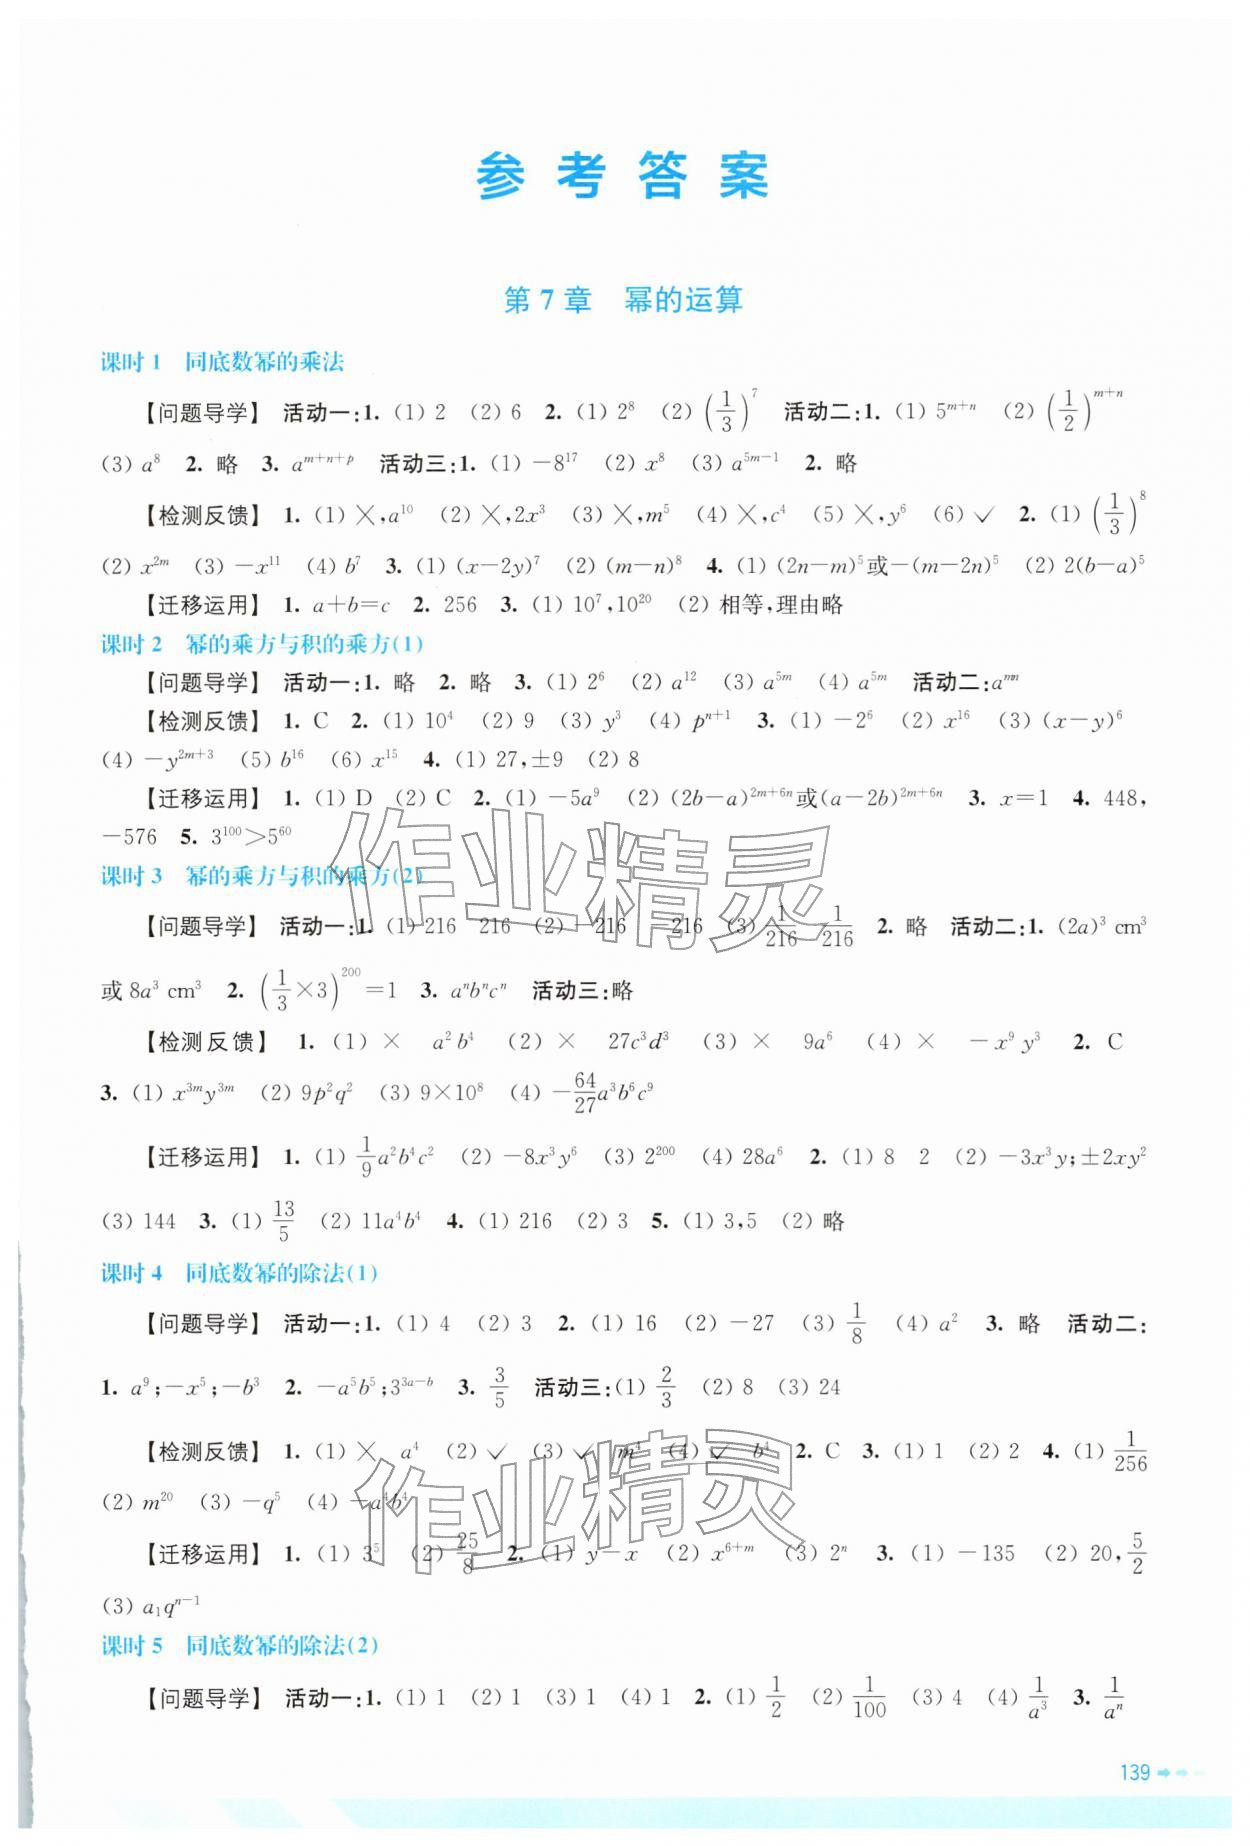 参考答案
第7章 幂的运算
课时1 同底数幂的乘法
【问题导学】 活动一:1. (1) 2 (2) 6 2. (1) 2⁸ (2) (1/3)⁷ 活动二:1. (1) 5ᵐ⁺ⁿ (2) (1/2)ᵐ⁺ⁿ
(3) a⁸ 2. 略 3. aᵐ⁺ⁿ⁺ᵖ 活动三:1. (1) −8¹⁷ (2) x⁸ (3) a⁵ᵐ⁻¹ 2. 略
【检测反馈】 1. (1) ×,a¹⁰ (2) ×,2x³ (3) ×,m⁵ (4) ×,c⁴ (5) ×,y⁶ (6) ✓ 2. (1) (1/3)⁸
(2) x²ᵐ (3) −x¹¹ (4) b⁷ 3. (1) (x−2y)⁷ (2) (m−n)⁸ 4. (1) (2n−m)⁵或−(m−2n)⁵ (2) 2(b−a)⁵
【迁移运用】 1. a+b=c 2. 256 3. (1) 10⁷,10²⁰ (2) 相等,理由略
课时2 幂的乘方与积的乘方(1)
【问题导学】 活动一:1. 略 2. 略 3. (1) 2⁶ (2) a¹² (3) a⁵ᵐ (4) a⁵ᵐ 活动二:aᵐⁿ
【检测反馈】 1. C 2. (1) 10⁴ (2) 9 (3) y³ (4) pⁿ⁺¹ 3. (1) −2⁶ (2) x¹⁶ (3) (x−y)⁶
(4) −y²ᵐ⁺³ (5) b¹⁶ (6) x¹⁵ 4. (1) 27,±9 (2) 8
【迁移运用】 1. (1) D (2) C 2. (1) −5a⁹ (2) (2b−a)²ᵐ⁺⁶ⁿ或(a−2b)²ᵐ⁺⁶ⁿ 3. x=1 4. 448,
−576 5. 3¹⁰⁰>5⁶⁰
课时3 幂的乘方与积的乘方(2)
【问题导学】 活动一:1. (1) 216 216 (2) −216 −216 (3) 1/216 1/216 2. 略 活动二:1. (2a)³ cm³
或 8a³ cm³ 2. (1/3×3)²⁰⁰=1 3. aⁿbⁿcⁿ 活动三:略
【检测反馈】 1. (1) × a²b⁴ (2) × 27c³d³ (3) × 9a⁶ (4) × −x⁹y³ 2. C
3. (1) x³ᵐy³ᵐ (2) 9p²q² (3) 9×10⁸ (4) −64/27a³b⁶c⁹
【迁移运用】 1. (1) 1/9a²b⁴c² (2) −8x³y⁶ (3) 2²⁰⁰ (4) 28a⁶ 2. (1) 8 2 (2) −3x³y;±2xy²
(3) 144 3. (1) 13/5 (2) 11a⁴b⁴ 4. (1) 216 (2) 3 5. (1) 3,5 (2) 略
课时4 同底数幂的除法(1)
【问题导学】 活动一:1. (1) 4 (2) 3 2. (1) 16 (2) −27 (3) 1/8 (4) a² 3. 略 活动二:
1. a⁹;−x⁵;−b³ 2. −a⁵b⁵;3³ᵃ⁻ᵇ 3. 3/5 活动三:(1) 2/3 (2) 8 (3) 24
【检测反馈】 1. (1) × a⁴ (2) ✓ (3) ✓ m⁴ (4) ✓ b⁴ 2. C 3. (1) 1 (2) 2 4. (1) 1/256
(2) m²⁰ (3) −q⁵ (4) −a⁴b⁴
【迁移运用】 1. (1) 3⁵ (2) 25/8 2. (1) y−x (2) x⁶⁺ᵐ (3) 2ⁿ 3. (1) −135 (2) 20,5/2
(3) a₁qⁿ⁻¹
课时5 同底数幂的除法(2)
【问题导学】 活动一:1. (1) 1 (2) 1 (3) 1 (4) 1 2. (1) 1/2 (2) 1/100 (3) 4 (4) 1/a³ 3. 1/aⁿ
139
作业精灵
作业精灵